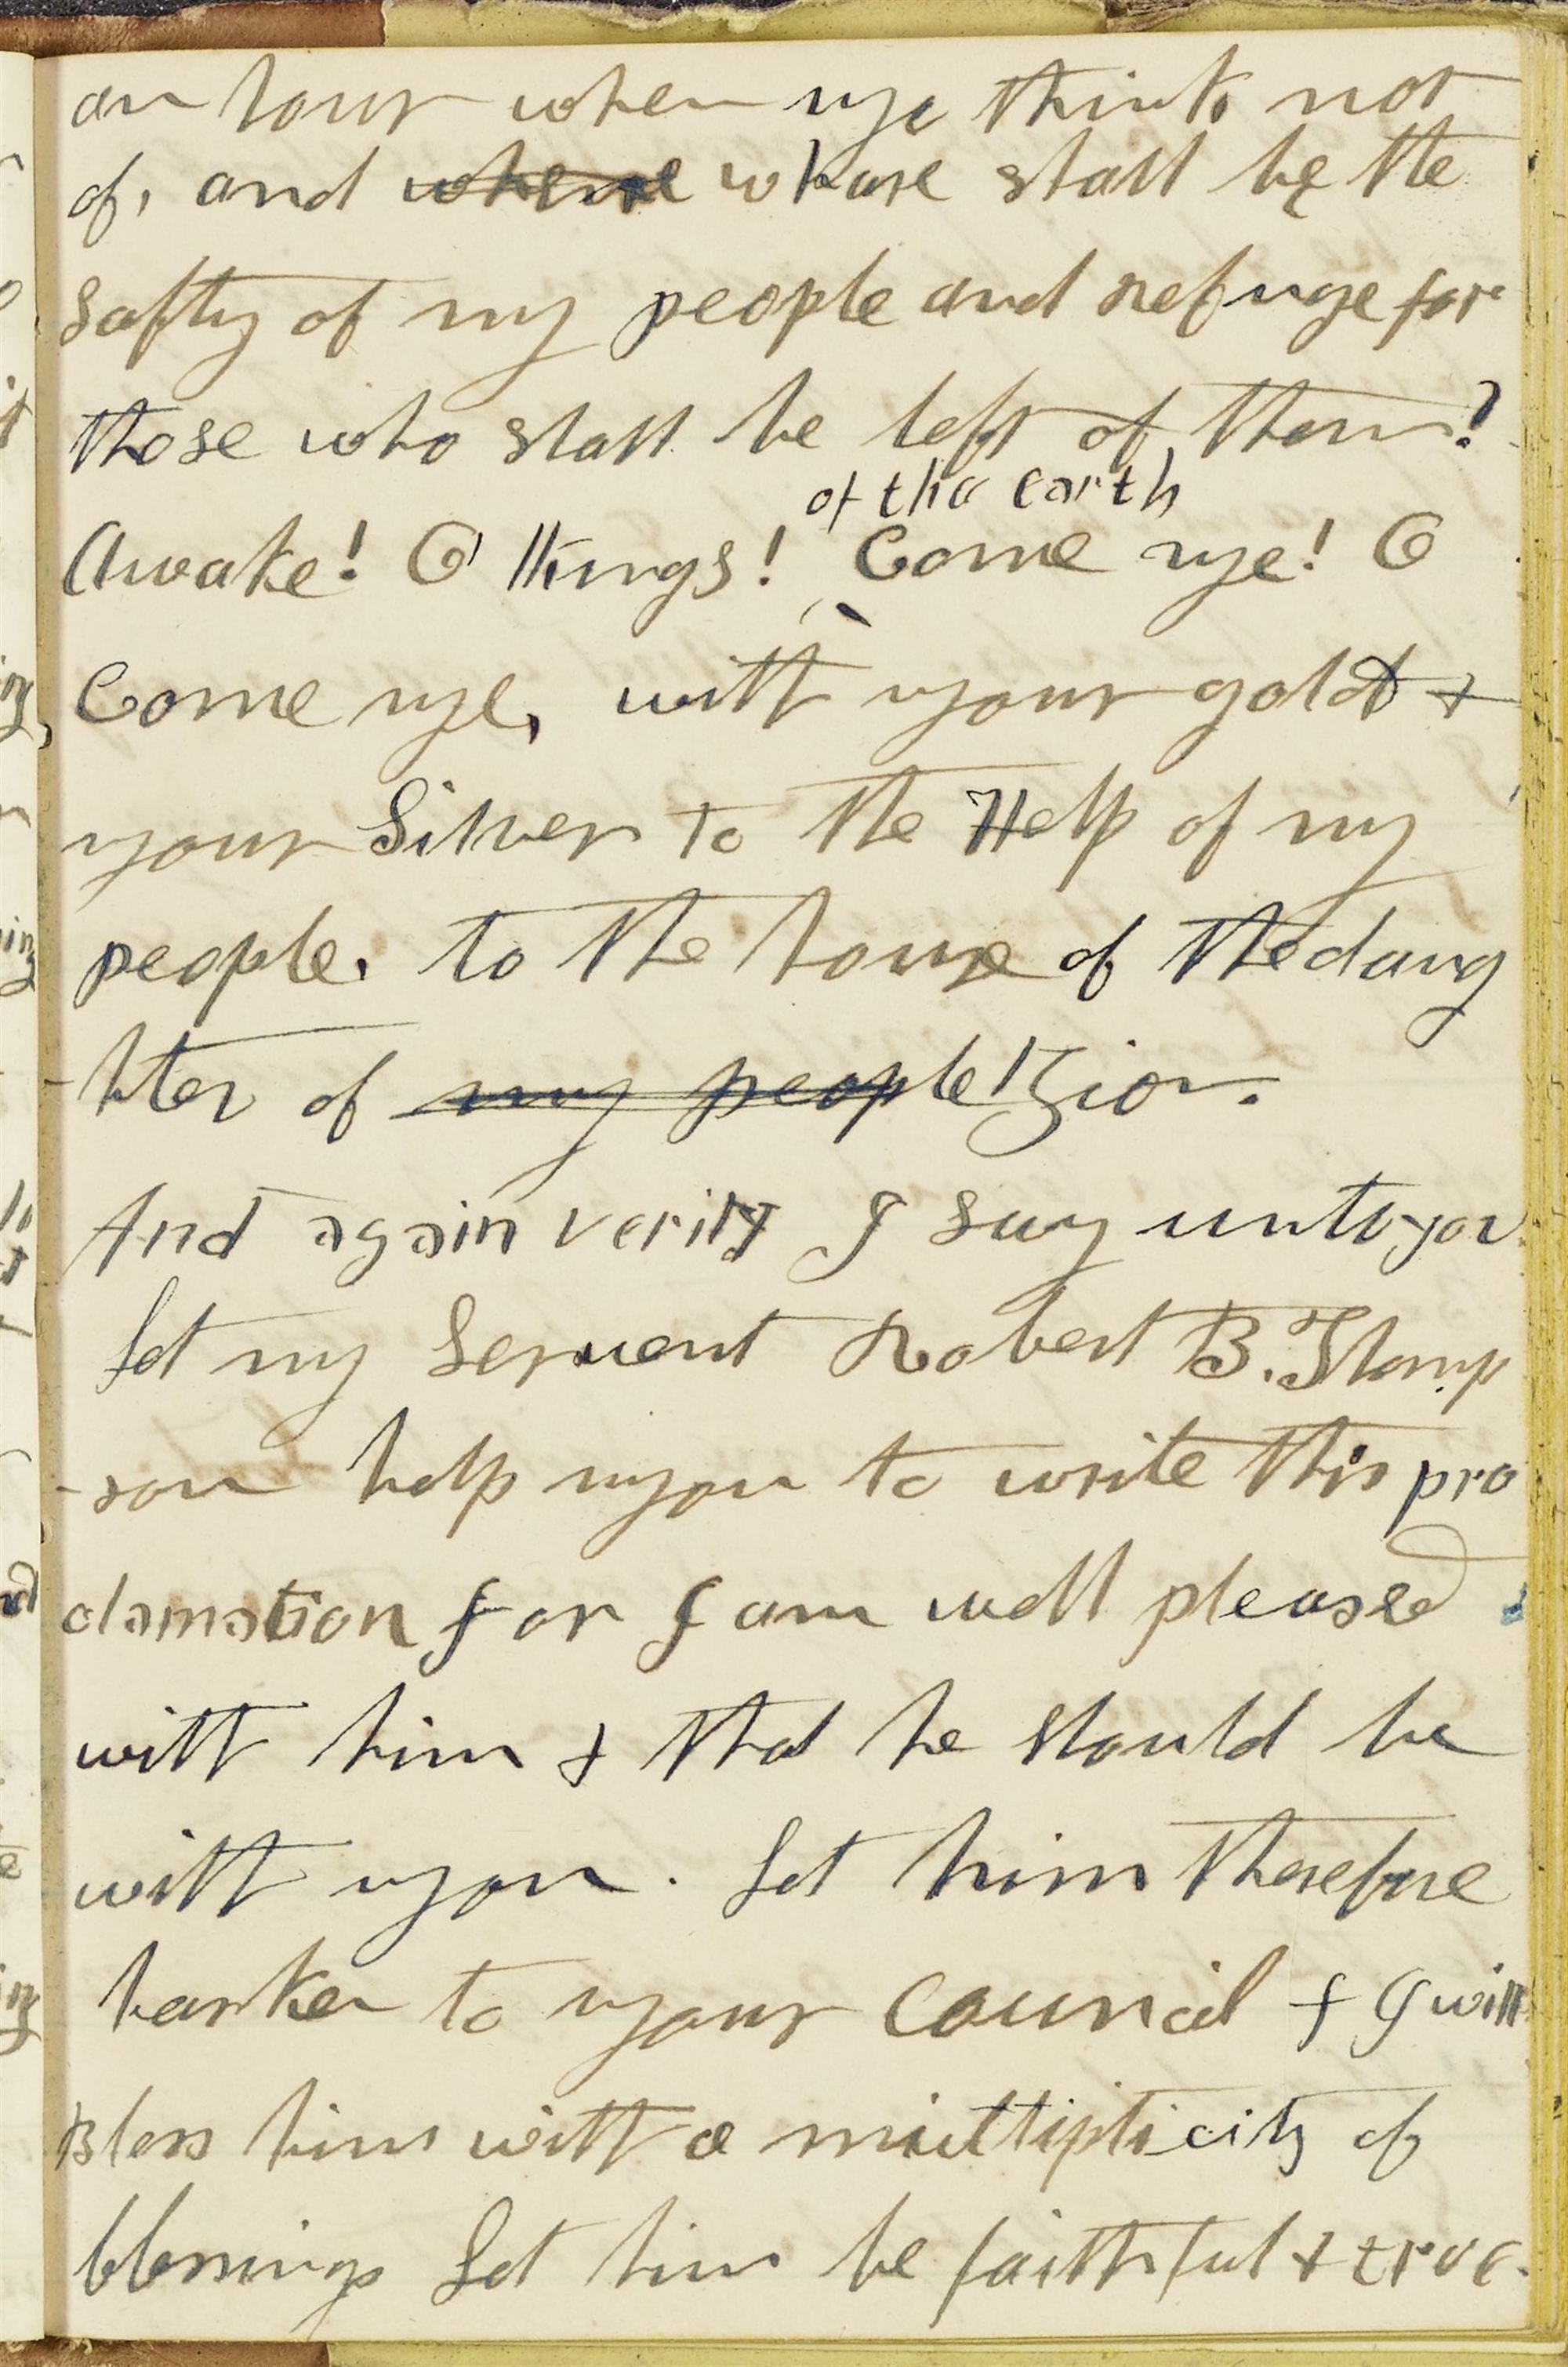 an hour when ye think not
of, and where whare shall be the
safty of my people and refuge for
those who shall be left of them?
of the earth
Awake! O Kings! Come ye! O
Come ye, with your gold +
your Silver to the Help of my
people. to the house of the daug
hter of my people Zion.
And again verily I say unto you
Let my Servent Robert B. Thomp
-son help you to write this pro
clamation for I am well pleased
with him + that he should be
with you. Let him therefore
harken to your Council + I will
Bless him with a multiplicity of
blessings Let him be faithful + true